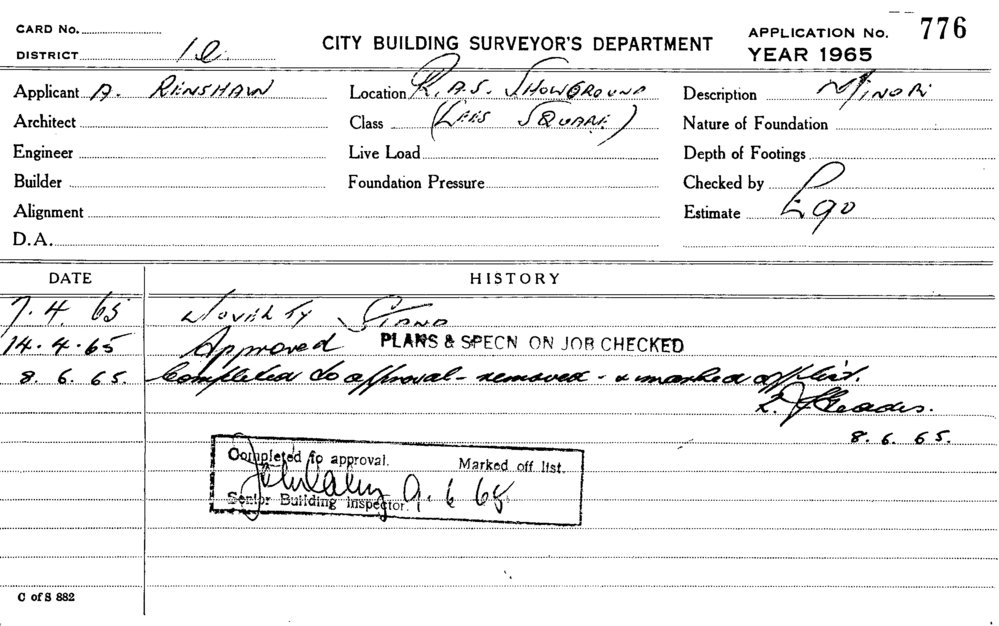 CARD No.
APPLICATION No. 776
DISTRICT
CITY BUILDING SURVEYOR'S DEPARTMENT
YEAR 1965
Applicant A. RENSHAW
Location R.A.S. SHOWGROUND
Description MINOR
Architect
Class (LEES SQUARE)
Nature of Foundation
Engineer
Live Load
Depth of Footings
Builder
Foundation Pressure
Checked by
Alignment
Estimate £90
D.A.
DATE
HISTORY
7.4.65 NOVELTY STAND
14.4.65 Approved PLANS & SPECN ON JOB CHECKED
8.6.65. Completed to approval - removed - & marked off list.
8.6.65.
Completed to approval. Marked off list.
Senior Building Inspector. 9.6.65
C of S 882